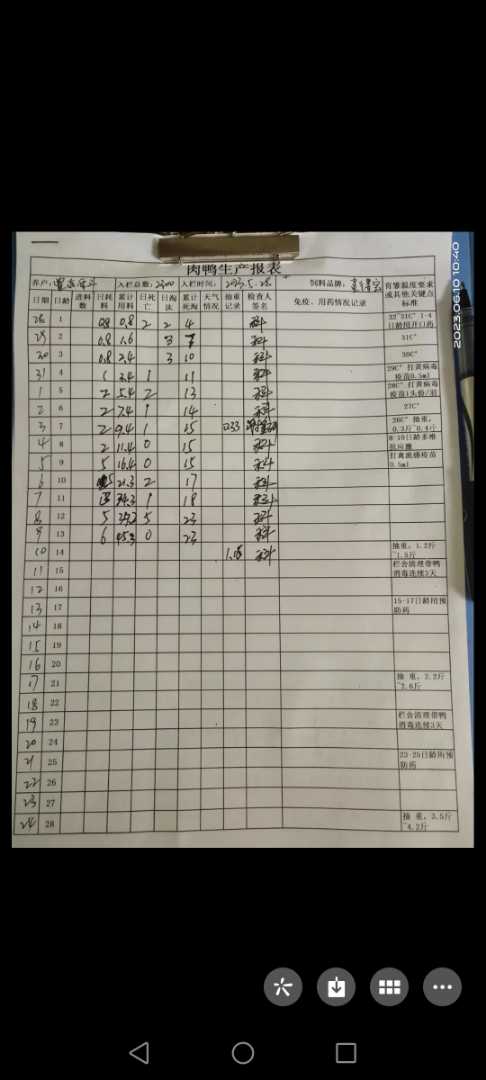 肉鸭生产报表
养户: 入栏总数: 2300 入栏时间: 2023.5.28 饲料品牌: 育雏温度要求或其他关键点标准
日期 日龄 进料数 日耗料 累计用料 日死亡 日淘汰 累计死淘 天气情况 抽重记录 检查人签名 免疫、用药情况记录
28 1 0.8 0.8 2 2 4 32~31C° 1-4日龄用开口药
29 2 0.8 1.6 3 7 31C°
30 3 0.8 2.4 3 10 30C°
31 4 1 3.4 1 11 29C° 打黄病毒疫苗0.5ml
1 5 2 5.4 2 13 28C°
2 6 2 7.4 1 14 27C°
3 7 2 9.4 1 15 0.33 26C° 抽重,0.3斤~0.4斤
4 8 2 11.4 0 15 8-10日龄多维抗应激
5 9 5 16.4 0 15 打禽流感疫苗0.5ml
6 10 21.3 2 17
7 11 1 18
8 12 5 5 23
9 13 6 45.3 0 23
10 14 抽重,1.2斤~1.5斤
11 15 栏舍清理带鸭消毒连续3天
12 16
13 17 15-17日龄用预防药
14 18
15 19
16 20
17 21 抽重,2.2斤~2.6斤
18 22
19 23 栏舍清理带鸭消毒连续3天
20 24
21 25 23-25日龄用预防药
22 26
23 27
24 28 抽重,3.5斤~4.2斤
2023.06.10 10:40